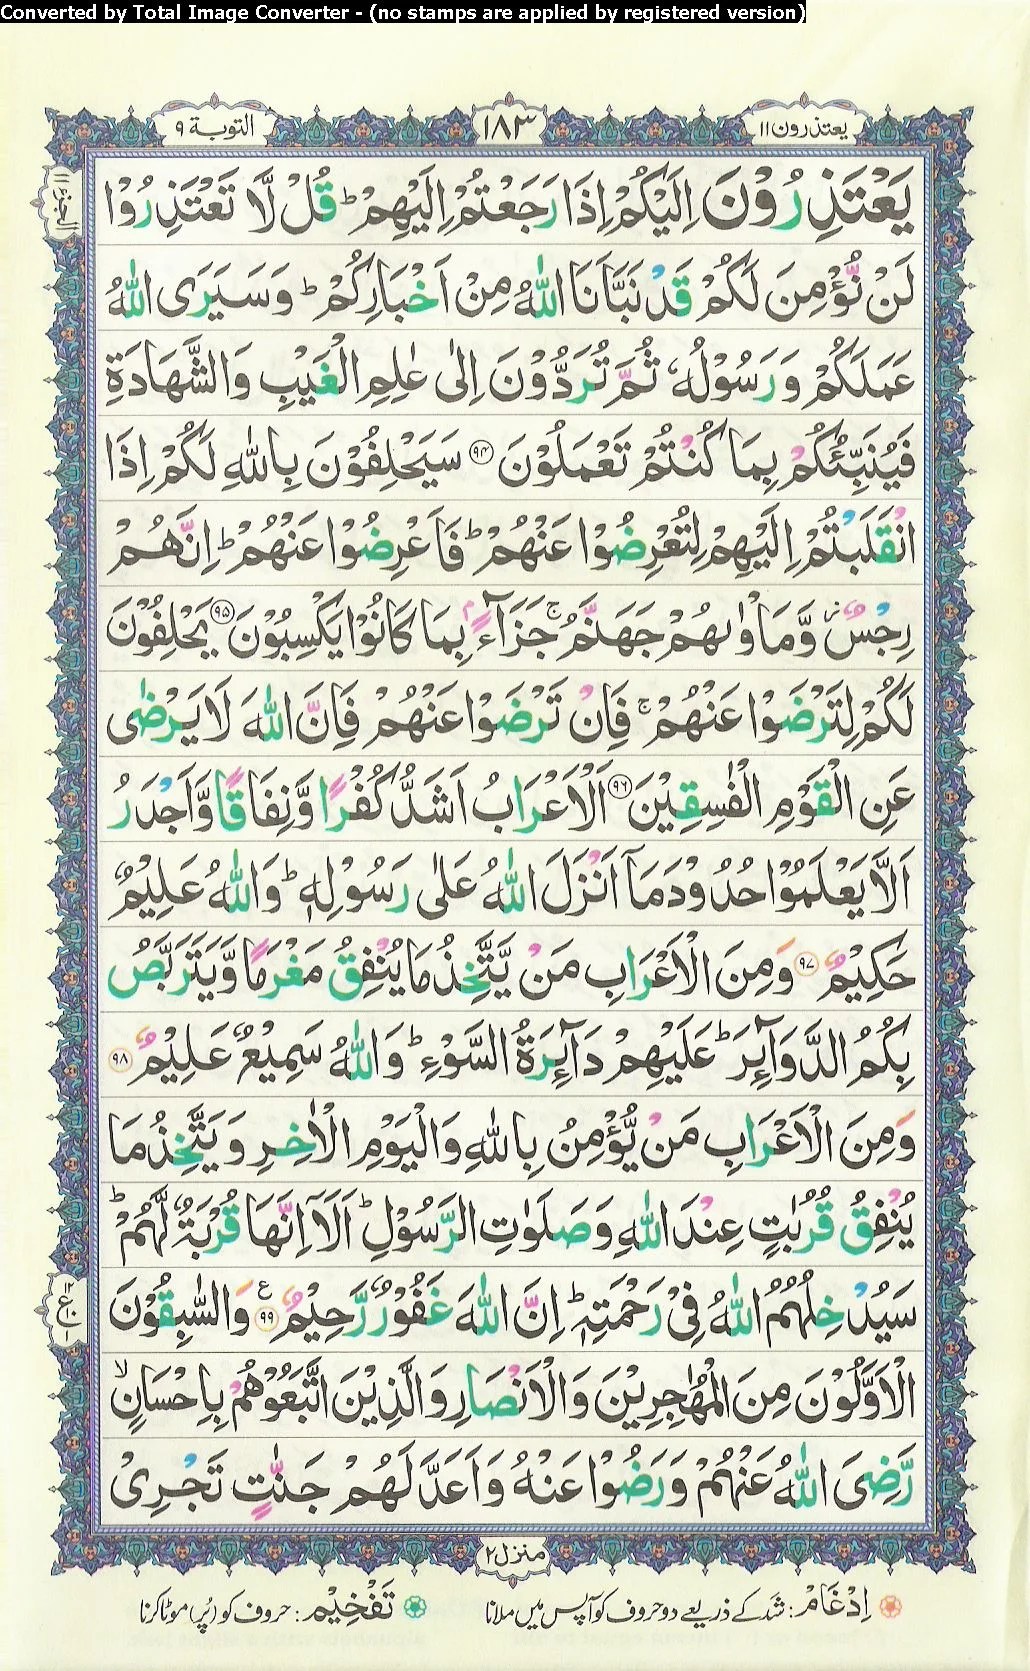 Converted by Total Image Converter - (no stamps are applied by registered version)
یعتذرون ١١
١٨٣
التوبة ٩
الجزء ١١
يَعْتَذِرُوْنَ اِلَيْكُمْ اِذَا رَجَعْتُمْ اِلَيْهِمْ ؕ قُلْ لَّا تَعْتَذِرُوْا
لَنْ نُّؤْمِنَ لَكُمْ قَدْ نَبَّاَنَا اللّٰهُ مِنْ اَخْبَارِكُمْ ؕ وَ سَيَرَى اللّٰهُ
عَمَلَكُمْ وَ رَسُوْلُهٗ ثُمَّ تُرَدُّوْنَ اِلٰى عٰلِمِ الْغَيْبِ وَالشَّهَادَةِ
فَيُنَبِّئُكُمْ بِمَا كُنْتُمْ تَعْمَلُوْنَ ۝۹۴ سَيَحْلِفُوْنَ بِاللّٰهِ لَكُمْ اِذَا
انْقَلَبْتُمْ اِلَيْهِمْ لِتُعْرِضُوْا عَنْهُمْ ؕ فَاَعْرِضُوْا عَنْهُمْ ؕ اِنَّهُمْ
رِجْسٌ ؗ وَّ مَاْوٰىهُمْ جَهَنَّمُ ۚ جَزَآءًۢ بِمَا كَانُوْا يَكْسِبُوْنَ ۝۹۵ يَحْلِفُوْنَ
لَكُمْ لِتَرْضَوْا عَنْهُمْ ۚ فَاِنْ تَرْضَوْا عَنْهُمْ فَاِنَّ اللّٰهَ لَا يَرْضٰى
عَنِ الْقَوْمِ الْفٰسِقِيْنَ ۝۹۶ اَلْاَعْرَابُ اَشَدُّ كُفْرًا وَّ نِفَاقًا وَّ اَجْدَرُ
اَلَّا يَعْلَمُوْا حُدُوْدَ مَآ اَنْزَلَ اللّٰهُ عَلٰى رَسُوْلِهٖ ؕ وَاللّٰهُ عَلِيْمٌ
حَكِيْمٌ ۝۹۷ وَ مِنَ الْاَعْرَابِ مَنْ يَّتَّخِذُ مَا يُنْفِقُ مَغْرَمًا وَّ يَتَرَبَّصُ
بِكُمُ الدَّوَآئِرَ ؕ عَلَيْهِمْ دَآئِرَةُ السَّوْءِ ؕ وَاللّٰهُ سَمِيْعٌ عَلِيْمٌ ۝۹۸
وَ مِنَ الْاَعْرَابِ مَنْ يُّؤْمِنُ بِاللّٰهِ وَالْيَوْمِ الْاٰخِرِ وَ يَتَّخِذُ مَا
يُنْفِقُ قُرُبٰتٍ عِنْدَ اللّٰهِ وَ صَلَوٰتِ الرَّسُوْلِ ؕ اَلَآ اِنَّهَا قُرْبَةٌ لَّهُمْ ؕ
سَيُدْخِلُهُمُ اللّٰهُ فِيْ رَحْمَتِهٖ ؕ اِنَّ اللّٰهَ غَفُوْرٌ رَّحِيْمٌ ۝۹۹ ع وَالسّٰبِقُوْنَ
الْاَوَّلُوْنَ مِنَ الْمُهٰجِرِيْنَ وَالْاَنْصَارِ وَالَّذِيْنَ اتَّبَعُوْهُمْ بِاِحْسَانٍ ۙ
رَّضِيَ اللّٰهُ عَنْهُمْ وَ رَضُوْا عَنْهُ وَ اَعَدَّ لَهُمْ جَنّٰتٍ تَجْرِيْ
منزل ٢
اِدْغَام: شد کے ذریعے دو حروف کو آپس میں ملانا
تَفْخِيْم: حروف کو (پُر) موٹا کرنا